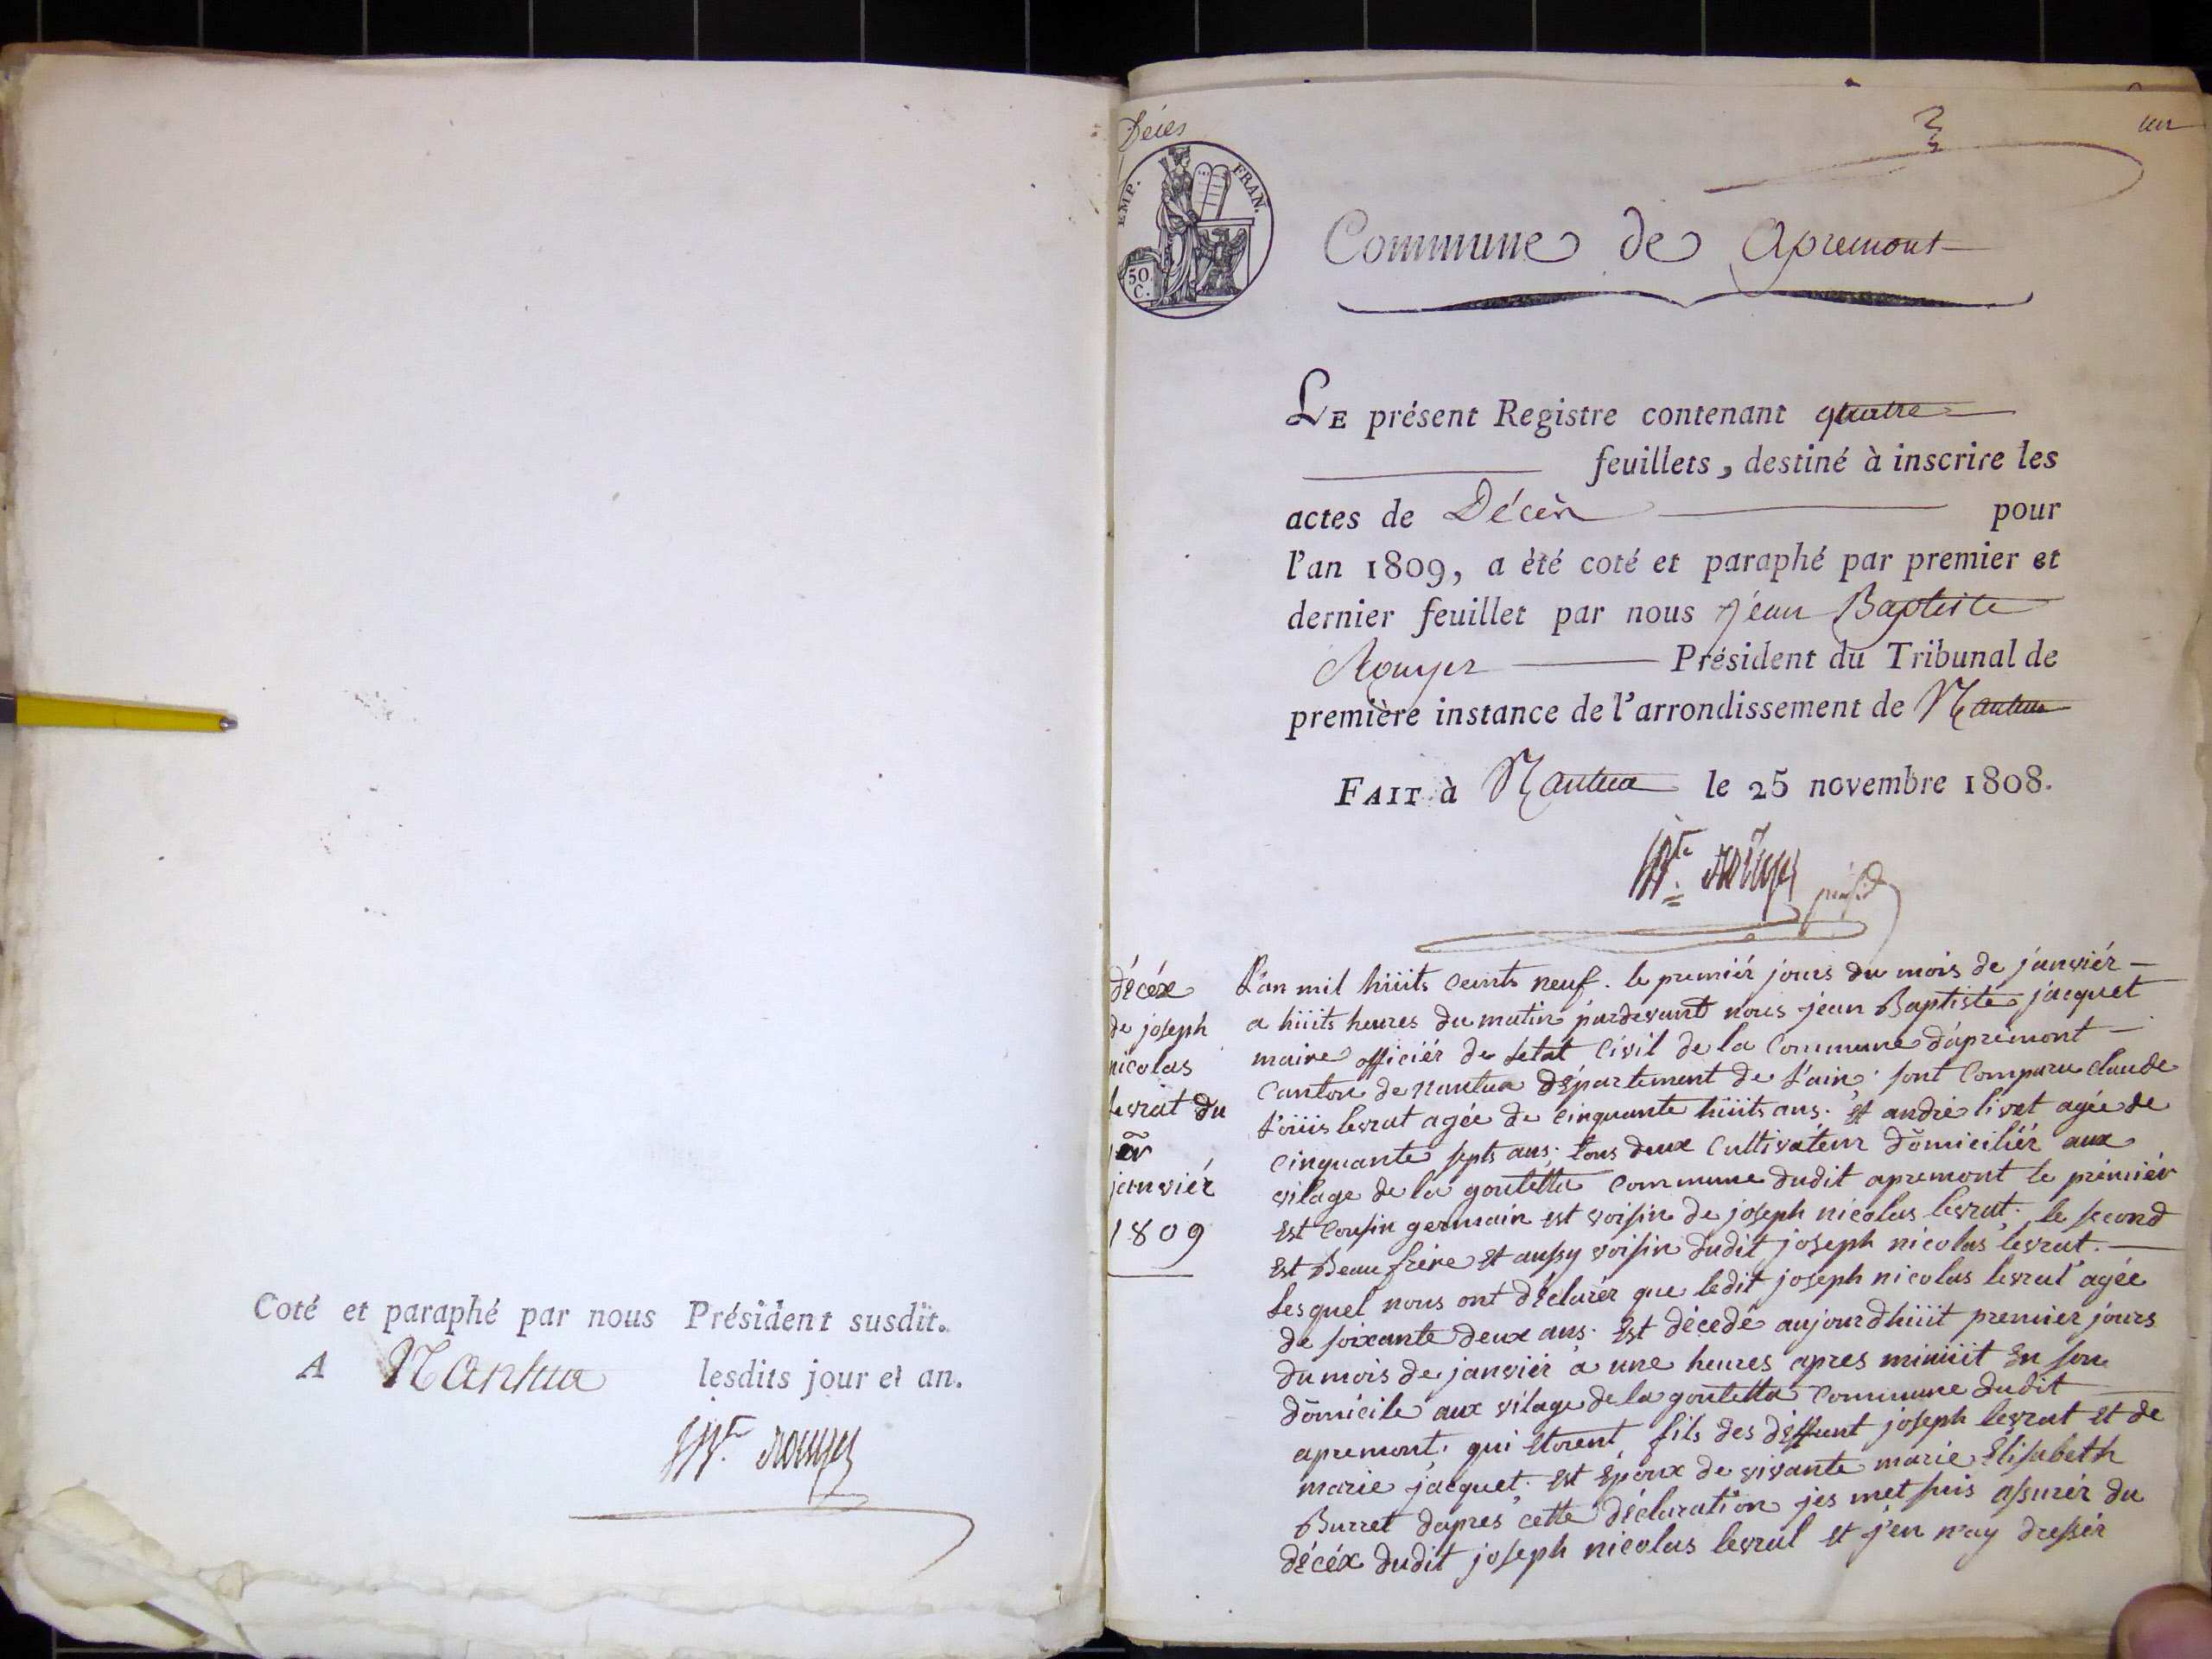 Coté et paraphé par nous Président susdit.
A Nantua lesdits jour et an.
JBte. rouyer
Décès
un
EMP. FRAN.
50 C.
Commune de Apremont
LE présent Registre contenant quatre
feuillets, destiné à inscrire les
actes de Décès pour
l'an 1809, a èté coté et paraphé par premier et
dernier feuillet par nous Jean Baptiste
Rouyer Président du Tribunal de
première instance de l'arrondissement de Nantua
FAIT à Nantua le 25 novembre 1808.
JBte. rouyer présid
décéx
de joseph
nicolas
levrat du
1er
janviér
1809
L'an mil hüits ceints neuf. le premiér jours du mois de janviér
a hüits heures du matin pardevant nous jean Baptiste jacquet
maire officiér de letat Civil de la Commune d'apremont
Canton de nantua département de L'ain sont Comparu claude
Loüis levrat agée de cinquante hüits ans. Et andré livet agée de
cinquante septs ans. tous deux Cultivateur domiciliér aux
vilage de la gouletta Commune dudit apremont le premiér
Est Cousin germain est voisin de joseph nicolas levrat. le second
Est Beau frère Et aussy voisin dudit joseph nicolas levrat.
Lesquel nous ont déclarér que ledit joseph nicolas levrat agée
de soixante deux ans. Est décedé aujourdhüit premier jours
du mois de janviér a une heures apres minüit En son
domicile aux vilage de la gouletta Commune dudit
apremont. qui Etorent fils des deffunt joseph levrat Et de
marie jacquet. Est Epoux de vivante marie Elisabeth
Burret dapres cette déclaration jes met suis assurér du
décéx dudit joseph nicolas levrat Et j'en n'ay dressér